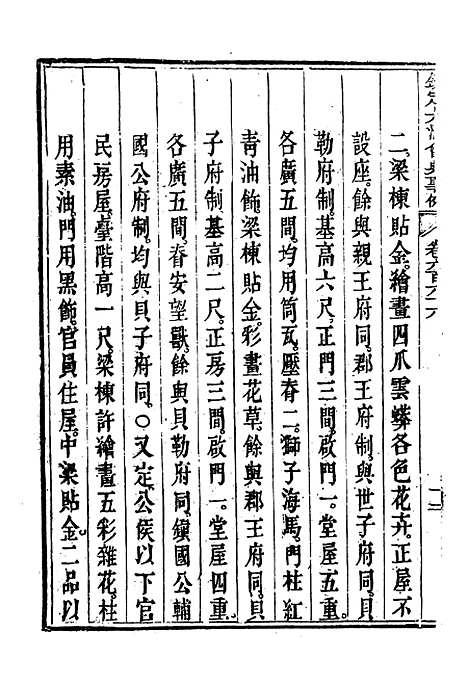 欽定大清會典事例 卷六百六十六
二。梁棟貼金。繪畫四爪雲蟒各色花卉。正屋不
設座。餘與親王府同。郡王府制。與世子府同。貝
勒府制。基高六尺。正門三間。啟門一。堂屋五重。
各廣五間。均用筒瓦。壓脊二。獅子海馬。門柱紅
青油飾。梁棟貼金。彩畫花草。餘與郡王府同。貝
子府制。基高二尺。正房三間。啟門一。堂屋四重。
各廣五間。脊安望獸。餘與貝勒府同。鎮國公輔
國公府制。均與貝子府同。○又定。公侯以下官
民房屋。臺階高一尺。梁棟許繪畫五彩雜花。柱
用素油。門用黑飾。官員住屋。中梁貼金。二品以